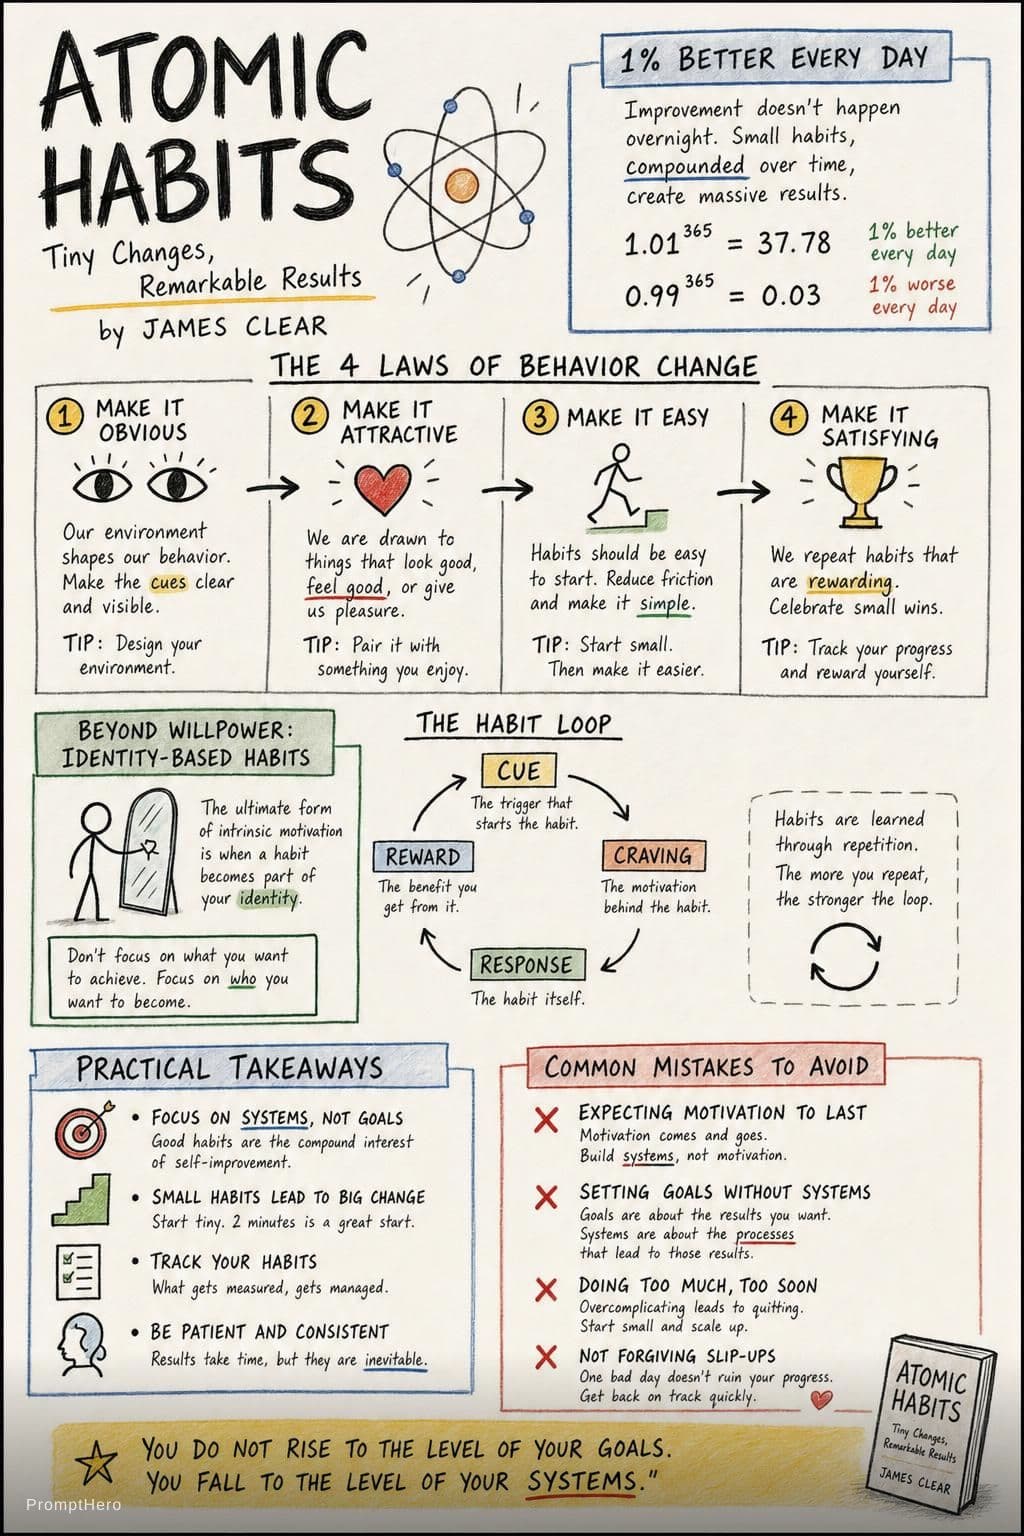 ATOMIC
HABITS
Tiny Changes,
Remarkable Results
by JAMES CLEAR
1% BETTER EVERY DAY
Improvement doesn't happen
overnight. Small habits,
compounded over time,
create massive results.
1.01^365 = 37.78
1% better
every day
0.99^365 = 0.03
1% worse
every day
THE 4 LAWS OF BEHAVIOR CHANGE
1 MAKE IT
OBVIOUS
Our environment
shapes our behavior.
Make the cues clear
and visible.
TIP: Design your
environment.
2 MAKE IT
ATTRACTIVE
We are drawn to
things that look good,
feel good, or give
us pleasure.
TIP: Pair it with
something you enjoy.
3 MAKE IT EASY
Habits should be easy
to start. Reduce friction
and make it simple.
TIP: Start small.
Then make it easier.
4 MAKE IT
SATISFYING
We repeat habits that
are rewarding.
Celebrate small wins.
TIP: Track your progress
and reward yourself.
BEYOND WILLPOWER:
IDENTITY-BASED HABITS
The ultimate form
of intrinsic motivation
is when a habit
becomes part of
your identity.
Don't focus on what you want
to achieve. Focus on who you
want to become.
THE HABIT LOOP
CUE
The trigger that
starts the habit.
CRAVING
The motivation
behind the habit.
RESPONSE
The habit itself.
REWARD
The benefit you
get from it.
Habits are learned
through repetition.
The more you repeat,
the stronger the loop.
PRACTICAL TAKEAWAYS
• FOCUS ON SYSTEMS, NOT GOALS
Good habits are the compound interest
of self-improvement.
• SMALL HABITS LEAD TO BIG CHANGE
Start tiny. 2 minutes is a great start.
• TRACK YOUR HABITS
What gets measured, gets managed.
• BE PATIENT AND CONSISTENT
Results take time, but they are inevitable.
COMMON MISTAKES TO AVOID
EXPECTING MOTIVATION TO LAST
Motivation comes and goes.
Build systems, not motivation.
SETTING GOALS WITHOUT SYSTEMS
Goals are about the results you want.
Systems are about the processes
that lead to those results.
DOING TOO MUCH, TOO SOON
Overcomplicating leads to quitting.
Start small and scale up.
NOT FORGIVING SLIP-UPS
One bad day doesn't ruin your progress.
Get back on track quickly.
YOU DO NOT RISE TO THE LEVEL OF YOUR GOALS.
YOU FALL TO THE LEVEL OF YOUR SYSTEMS."
ATOMIC
HABITS
Tiny Changes,
Remarkable Results
JAMES CLEAR
PromptHero